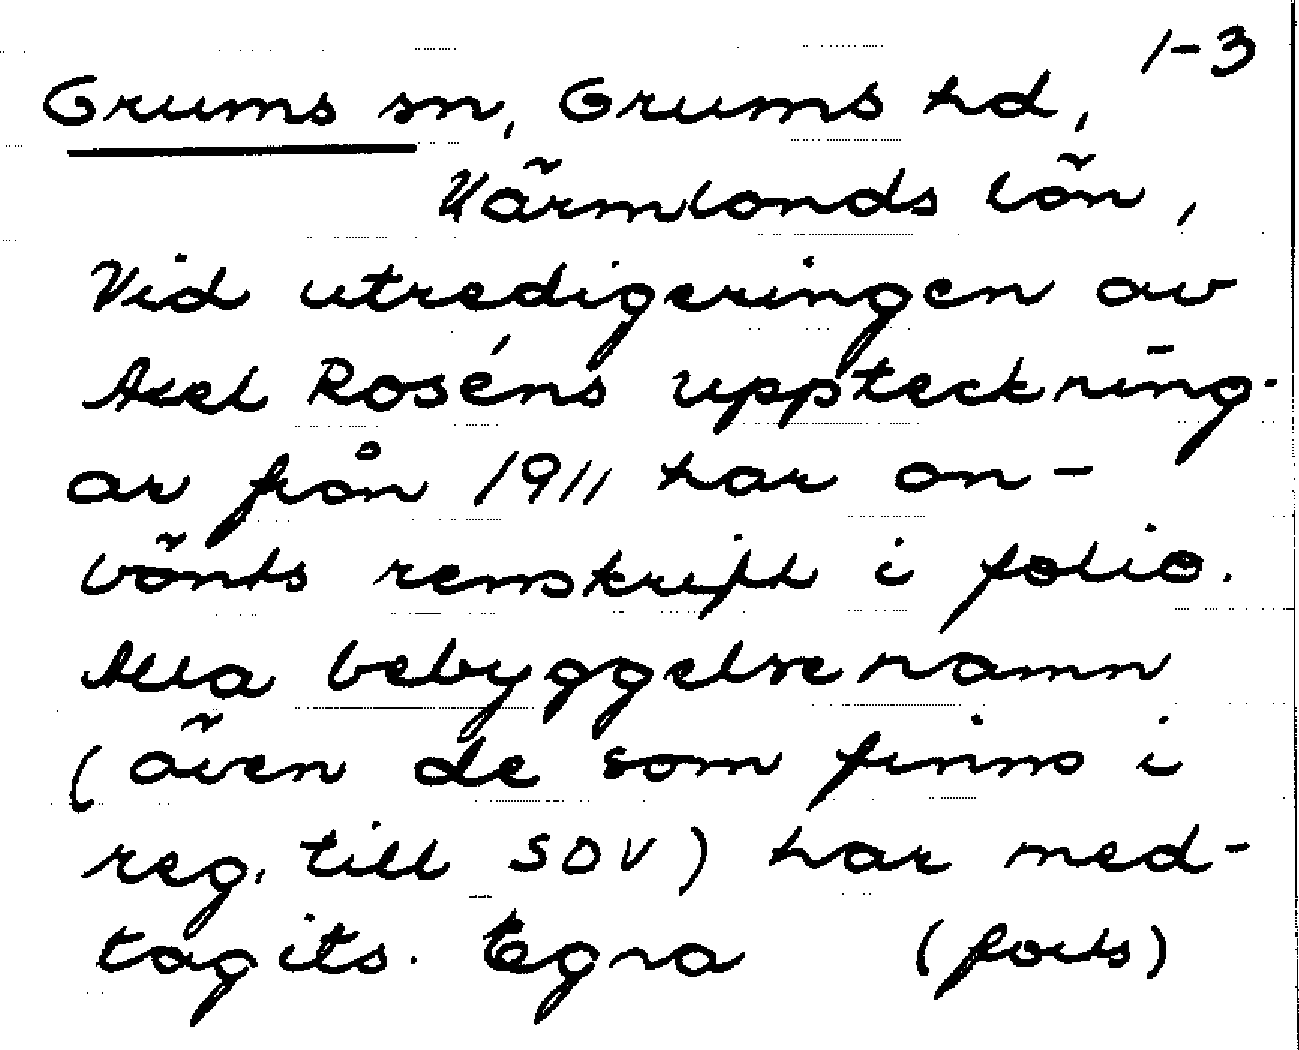 1-3
Grums sn, Grums hd,
Värmlands län,
Vid utredigeringen av
Axel Roséns uppteckning-
ar från 1911 har an-
vänts renskrift i folio.
Alla bebyggelsenamn
(även de som finns i
reg. till SOV) har med-
tagits. Egna (forts)